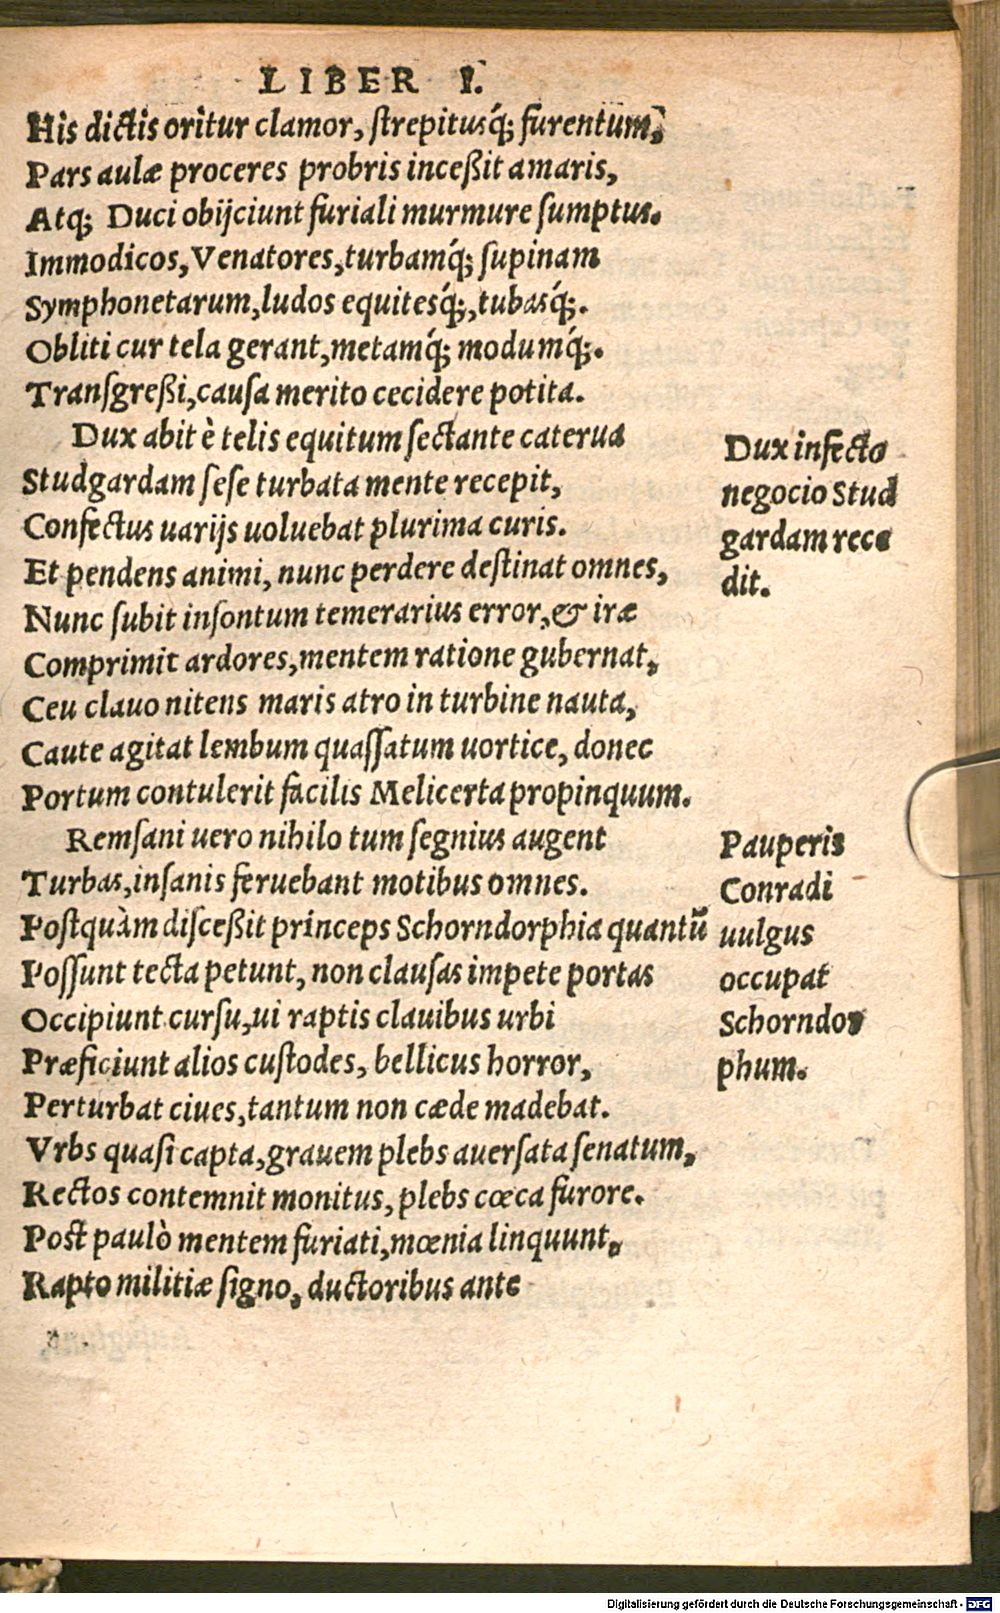 LIBER I.
His dictis oritur clamor, ſtrepitusq́; furentum,
Pars aulæ proceres probris inceßit amaris,
Atq; Duci obijciunt furiali murmure ſumptus.
Immodicos, Venatores, turbamq́; ſupinam
Symphonetarum, ludos equitesq́;, tubasq́;.
Obliti cur tela gerant, metamq́; modumq́;.
Tranſgreßi, cauſa merito cecidere potita.
Dux abit è telis equitum ſectante caterua
Studgardam ſeſe turbata mente recepit,
Confectus uarijs uoluebat plurima curis.
Et pendens animi, nunc perdere deſtinat omnes,
Nunc ſubit inſontum temerarius error, & iræ
Comprimit ardores, mentem ratione gubernat,
Ceu clauo nitens maris atro in turbine nauta,
Caute agitat lembum quaſſatum uortice, donec
Portum contulerit facilis Melicerta propinquum.
Remſani uero nihilo tum ſegnius augent
Turbas, inſanis feruebant motibus omnes.
Poſtquàm diſceßit princeps Schorndorphia quantũ
Poſſunt tecta petunt, non clauſas impete portas
Occipiunt curſu, ui raptis clauibus urbi
Præficiunt alios cuſtodes, bellicus horror,
Perturbat ciues, tantum non cæde madebat.
Vrbs quaſi capta, grauem plebs auerſata ſenatum,
Rectos contemnit monitus, plebs cœca furore.
Poſt paulò mentem furiati, mœnia linquunt,
Rapto militiæ ſigno, ductoribus ante
Dux infecto
negocio Stud
gardam rece
dit.
Pauperis
Conradi
uulgus
occupat
Schorndor
phum.
Digitalisierung gefördert durch die Deutsche Forschungsgemeinschaft - DFG